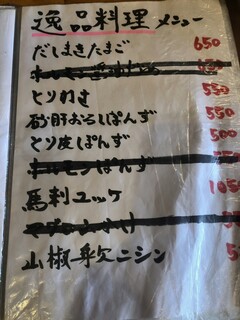 逸品料理メニュー
だしまきたまご 650
とりわさ 550
砂肝おろしぽんず 550
とり皮ぽんず 500
ホルモンぽんず
馬刺ユッケ 105
山椒身欠ニシン 5